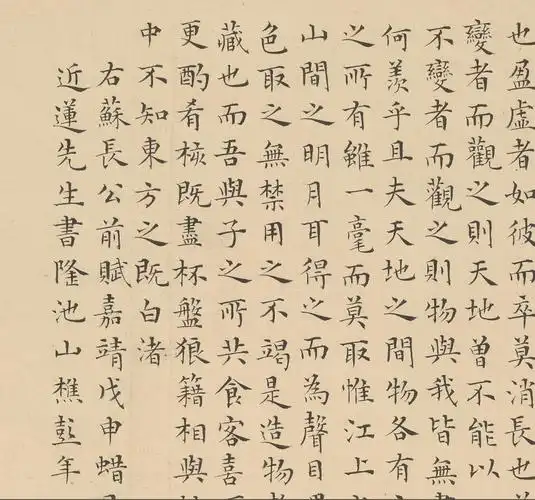 也盈虛者如彼而卒莫消長也
變者而觀之則天地曾不能以
不變者而觀之則物與我皆無
何羨乎且夫天地之間物各有
之所有雖一毫而莫取惟江上
山間之明月耳得之而為聲目
色取之無禁用之不竭是造物
藏也而吾與子之所共食客喜
更酌肴核既盡杯盤狼籍相與
中不知東方之既白渚
右蘇長公前賦嘉靖戊申蜡
近蓮先生書隆池山樵彭年